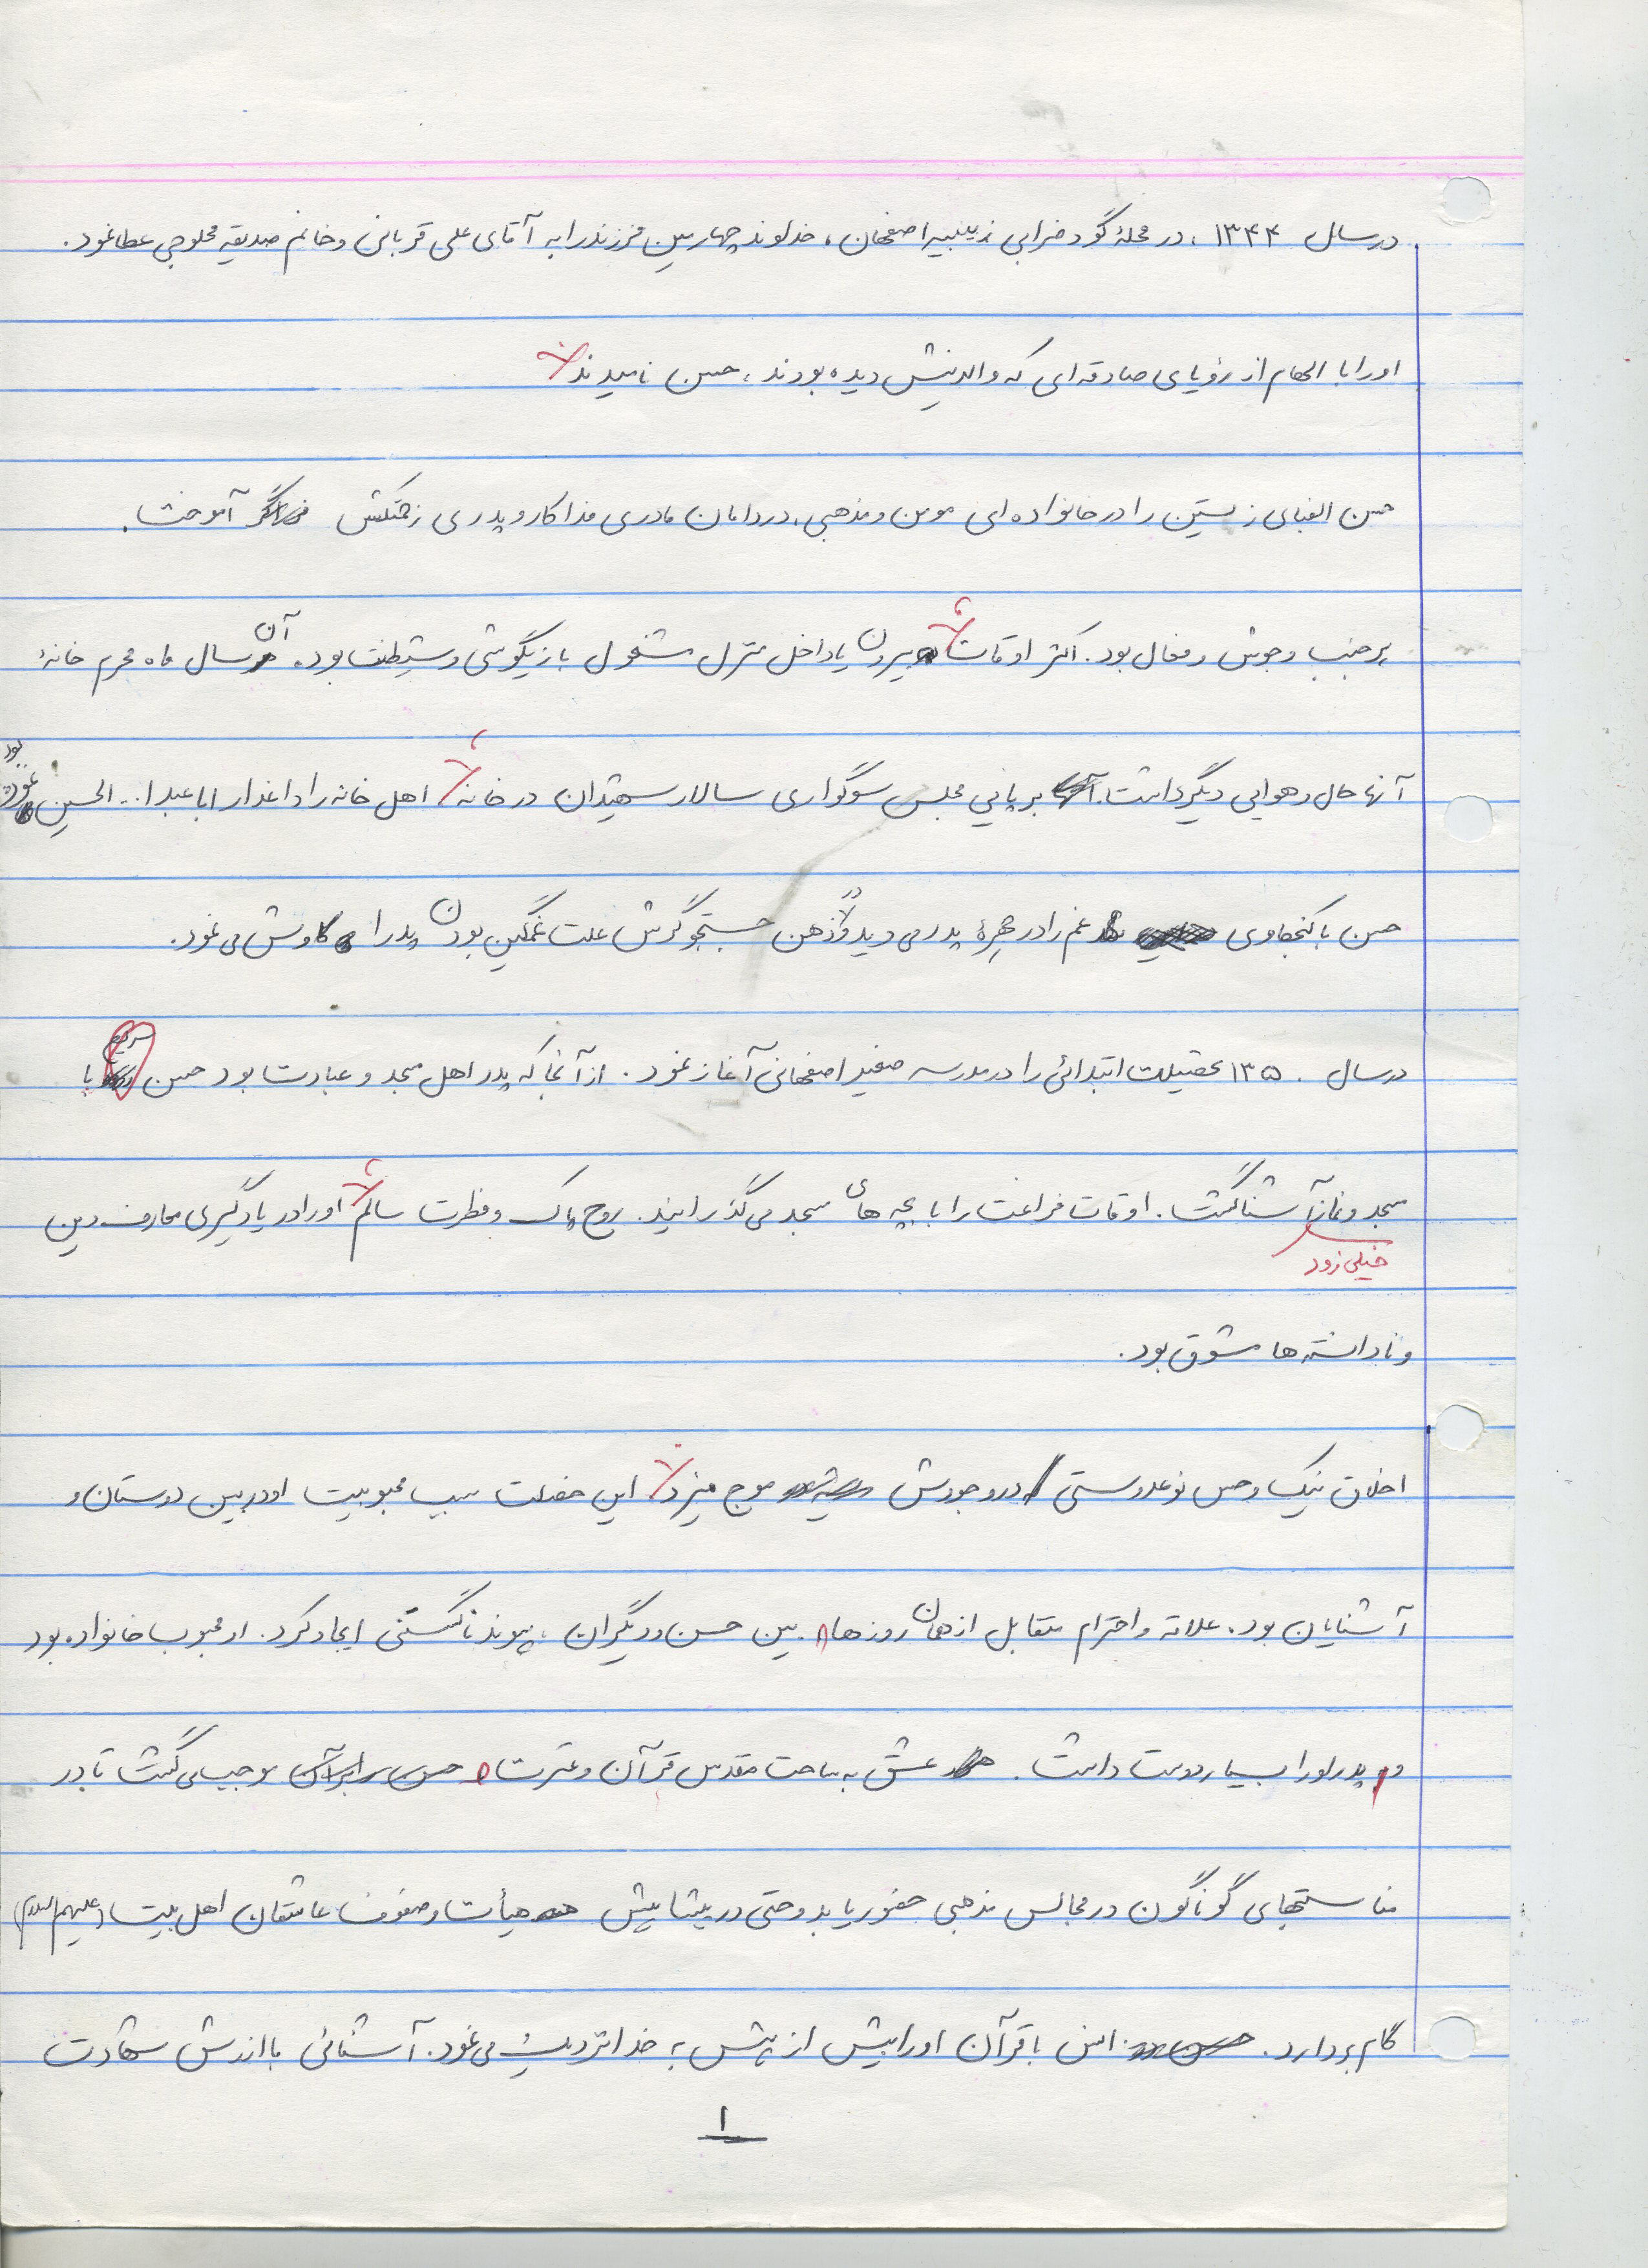 در سال ۱۳۴۴ ، در محلهٔ گود خرابی زینبیه اصفهان ، خداوند چهارمین فرزند را به آقای علی قربانی و خانم صدیقه محلوجی عطا نمود .
او را با الهام از رؤیای صادقه‌ای که والدینش دیده بودند ، حسن نامیدند
حسن الفبای زیستن را در خانواده‌ای مومن و مذهبی ، در دامان مادری فداکار و پدری زحمتکش آموخت .
پر جنب و جوش و فعال بود . اکثر اوقات بیرون یا داخل منزل مشغول بازیگوشی و شیطنت بود . آن سال ماه محرم خانهٔ
آنها حال و هوایی دیگر داشت . برپایی مجلس سوگواری سالار شهیدان در خانه ، اهل خانه را داغدار ابا عبدا... الحسین نموده بود
حسن با کنجکاوی غم را در چهرهٔ پدر می دید و در ذهن جستجوگرش علت غمگین بودن پدر را کاوش می نمود .
در سال ۱۳۵۰ تحصیلات ابتدائی را در مدرسه صغیر اصفهانی آغاز نمود . از آنجا که پدر اهل مسجد و عبادت بود حسن با
مسجد و نماز آشنا گشت . اوقات فراغت را با بچه های مسجد می گذرانید . روح پاک و فطرت سالم ، او را در یادگیری معارف دین
خیلی زود
و نادانسته ها مشوق بود .
اخلاق نیک و حس نوعدوستی در وجودش موج میزد . این خصلت سبب محبوبیت او در بین دوستان و
آشنایان بود . علاقه و احترام متقابل از همان روزها ، بین حسن و دیگران ، پیوند ناگسستنی ایجاد کرد . او محبوب خانواده بود
و پدر او را بسیار دوست داشت . عشق به ساحت مقدس قرآن و عترت موجب می گشت تا در
مناسبتهای گوناگون در مجالس مذهبی حضور یابد و حتی در پیشاپیش هیأت و صفوف عاشقان اهل بیت (علیهم السلام)
گام بردارد . انس با قرآن او را بیش از پیش به خدا نزدیک می نمود . آشنائی با ارزش شهادت
۱